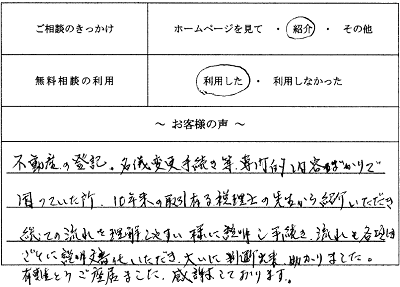 ご相談のきっかけ ホームページを見て ・ 紹介 ・ その他
無料相談の利用 利用した ・ 利用しなかった
～ お客様の声 ～
不動産の登記。名儀変更手続き等、専門的内容ばかりで
困っていた所、10年来の取引ある税理士の先生から紹介いただき
総ての流れを理解しやすい様に説明し手続き、流れも各項目
ごとに説明文書化いただき、大いに判断出来、助かりました。
有難とうご座居ました。感謝しております。